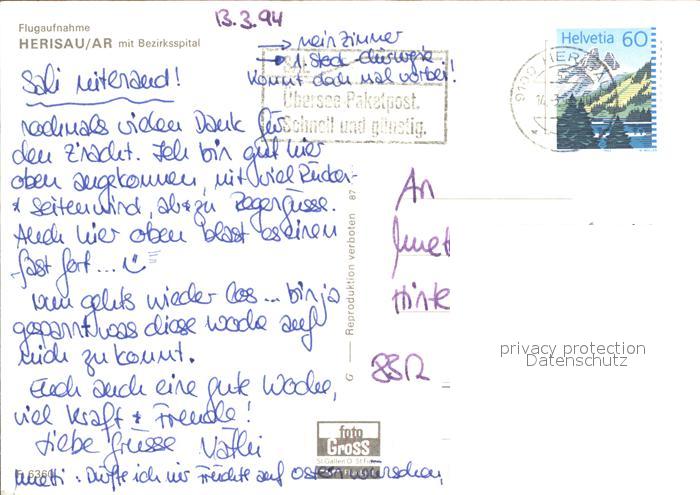 Flugaufnahme
HERISAU/AR mit Bezirksspital
13.3.94
→ mein Zimmer
→ 1. Stock
Kommt doch mal vorbei!
Helvetia 60
9100 HERISAU
Übersee-Paketpost.
Schnell und günstig.
Sali miterand!
nochmals vielen Dank für
den Z'nacht. Ich bin gut hier
oben angekommen, mit viel Rücken-
+ Seitenwind, ab+zu Regengüsse.
Auch hier oben blast es einen
fast fort...
Nun gehts wieder los... bin ja
gespannt was diese Woche auf
mich zu kommt.
Euch auch eine gute Woche,
viel Kraft + Freude!
Liebe Grüsse
An
Hinte
8512
G — Reproduktion verboten 87
foto
GROSS
St. Gallen
F 6360
: Dürfte ich mir Früchte auf Ostern wünschen,
privacy protection
Datenschutz